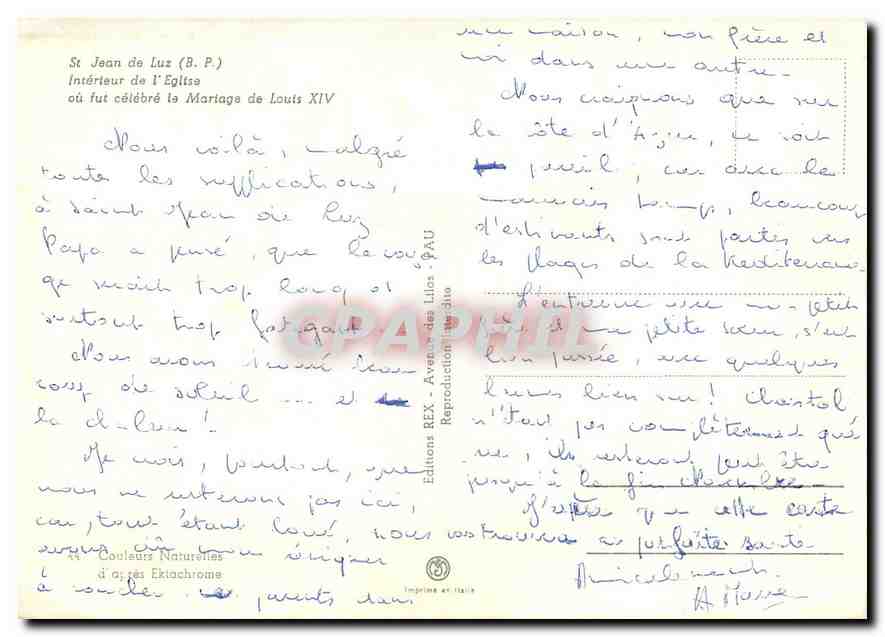 St Jean de Luz (B. P.)
Intérieur de l'Eglise
où fut célébré le Mariage de Louis XIV
Nous voilà, malgré
toutes les supplications,
à Saint Jean de Luz
Papa a pensé, que le voya
ge serait trop long et
surtout trop fatigant.
Nous avons trouvé beau
coup de soleil ... et
la chaleur!
Je crois, pourtant, que
nous ne resterons pas ici,
car, tout étant loué, nous
avons dû nous
à coucher parents dans
44 Couleurs Naturelles
d'après Ektachrome
Editions REX - Avenue des Lilas - PAU
Reproduction interdite
CPAPHIL
Imprimé en Italie
une maison, mon frère et
moi dans une autre.
Nous craignons que sur
la côte d'Azur, ce soit
pareil, car avec le
mauvais temps, beaucoup
d'estivants sont partis vers
les plages de la Méditerranée.
L'entrevue avec mon petit
frère et ma petite sœur, s'est
bien passée, avec quelques
larmes bien sur! Christol
n'étant pas complètement gué
rie, ils resteront peut être
jusqu'à la fin
J'espère que cette carte
vous trouvera en parfaite santé
Amicalement.